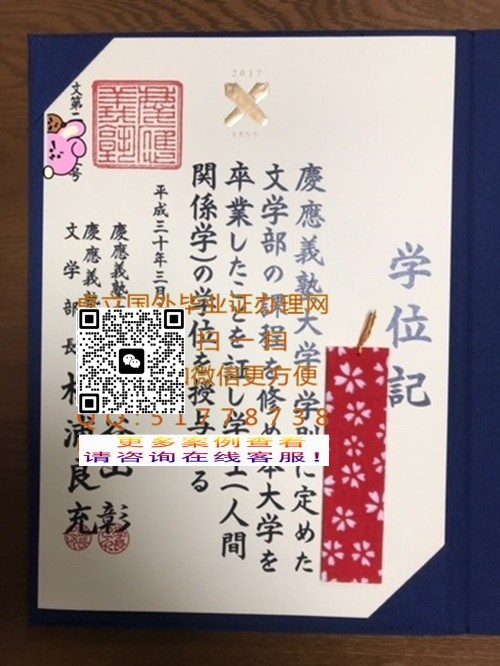 2017
学位記
慶應義塾大学学則に定めた
文学部の課程を修め本大学を
卒業したことを証し学士(人間
関係学)の学位を授与する
平成三十年三月
慶應義塾
山彰
慶應義
文学部長
浦良充
文第
号
慶應義塾
立国外毕业证办理网
扫一扫
微信更方便
QQ:51778738
更多案例查看
请咨询在线客服!